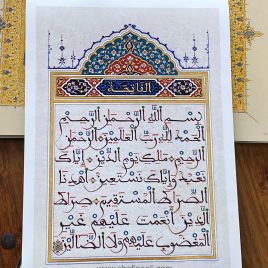 الفاتحة
بسم الله الرحمن الرحيم
الحمد لله رب العلمين الرحمن
الرحيم ملك يوم الدين إياك
نعبد وإياك نستعين اهدنا
الصراط المستقيم صراط
الذين أنعمت عليهم غير
المغضوب عليهم ولا الضالين